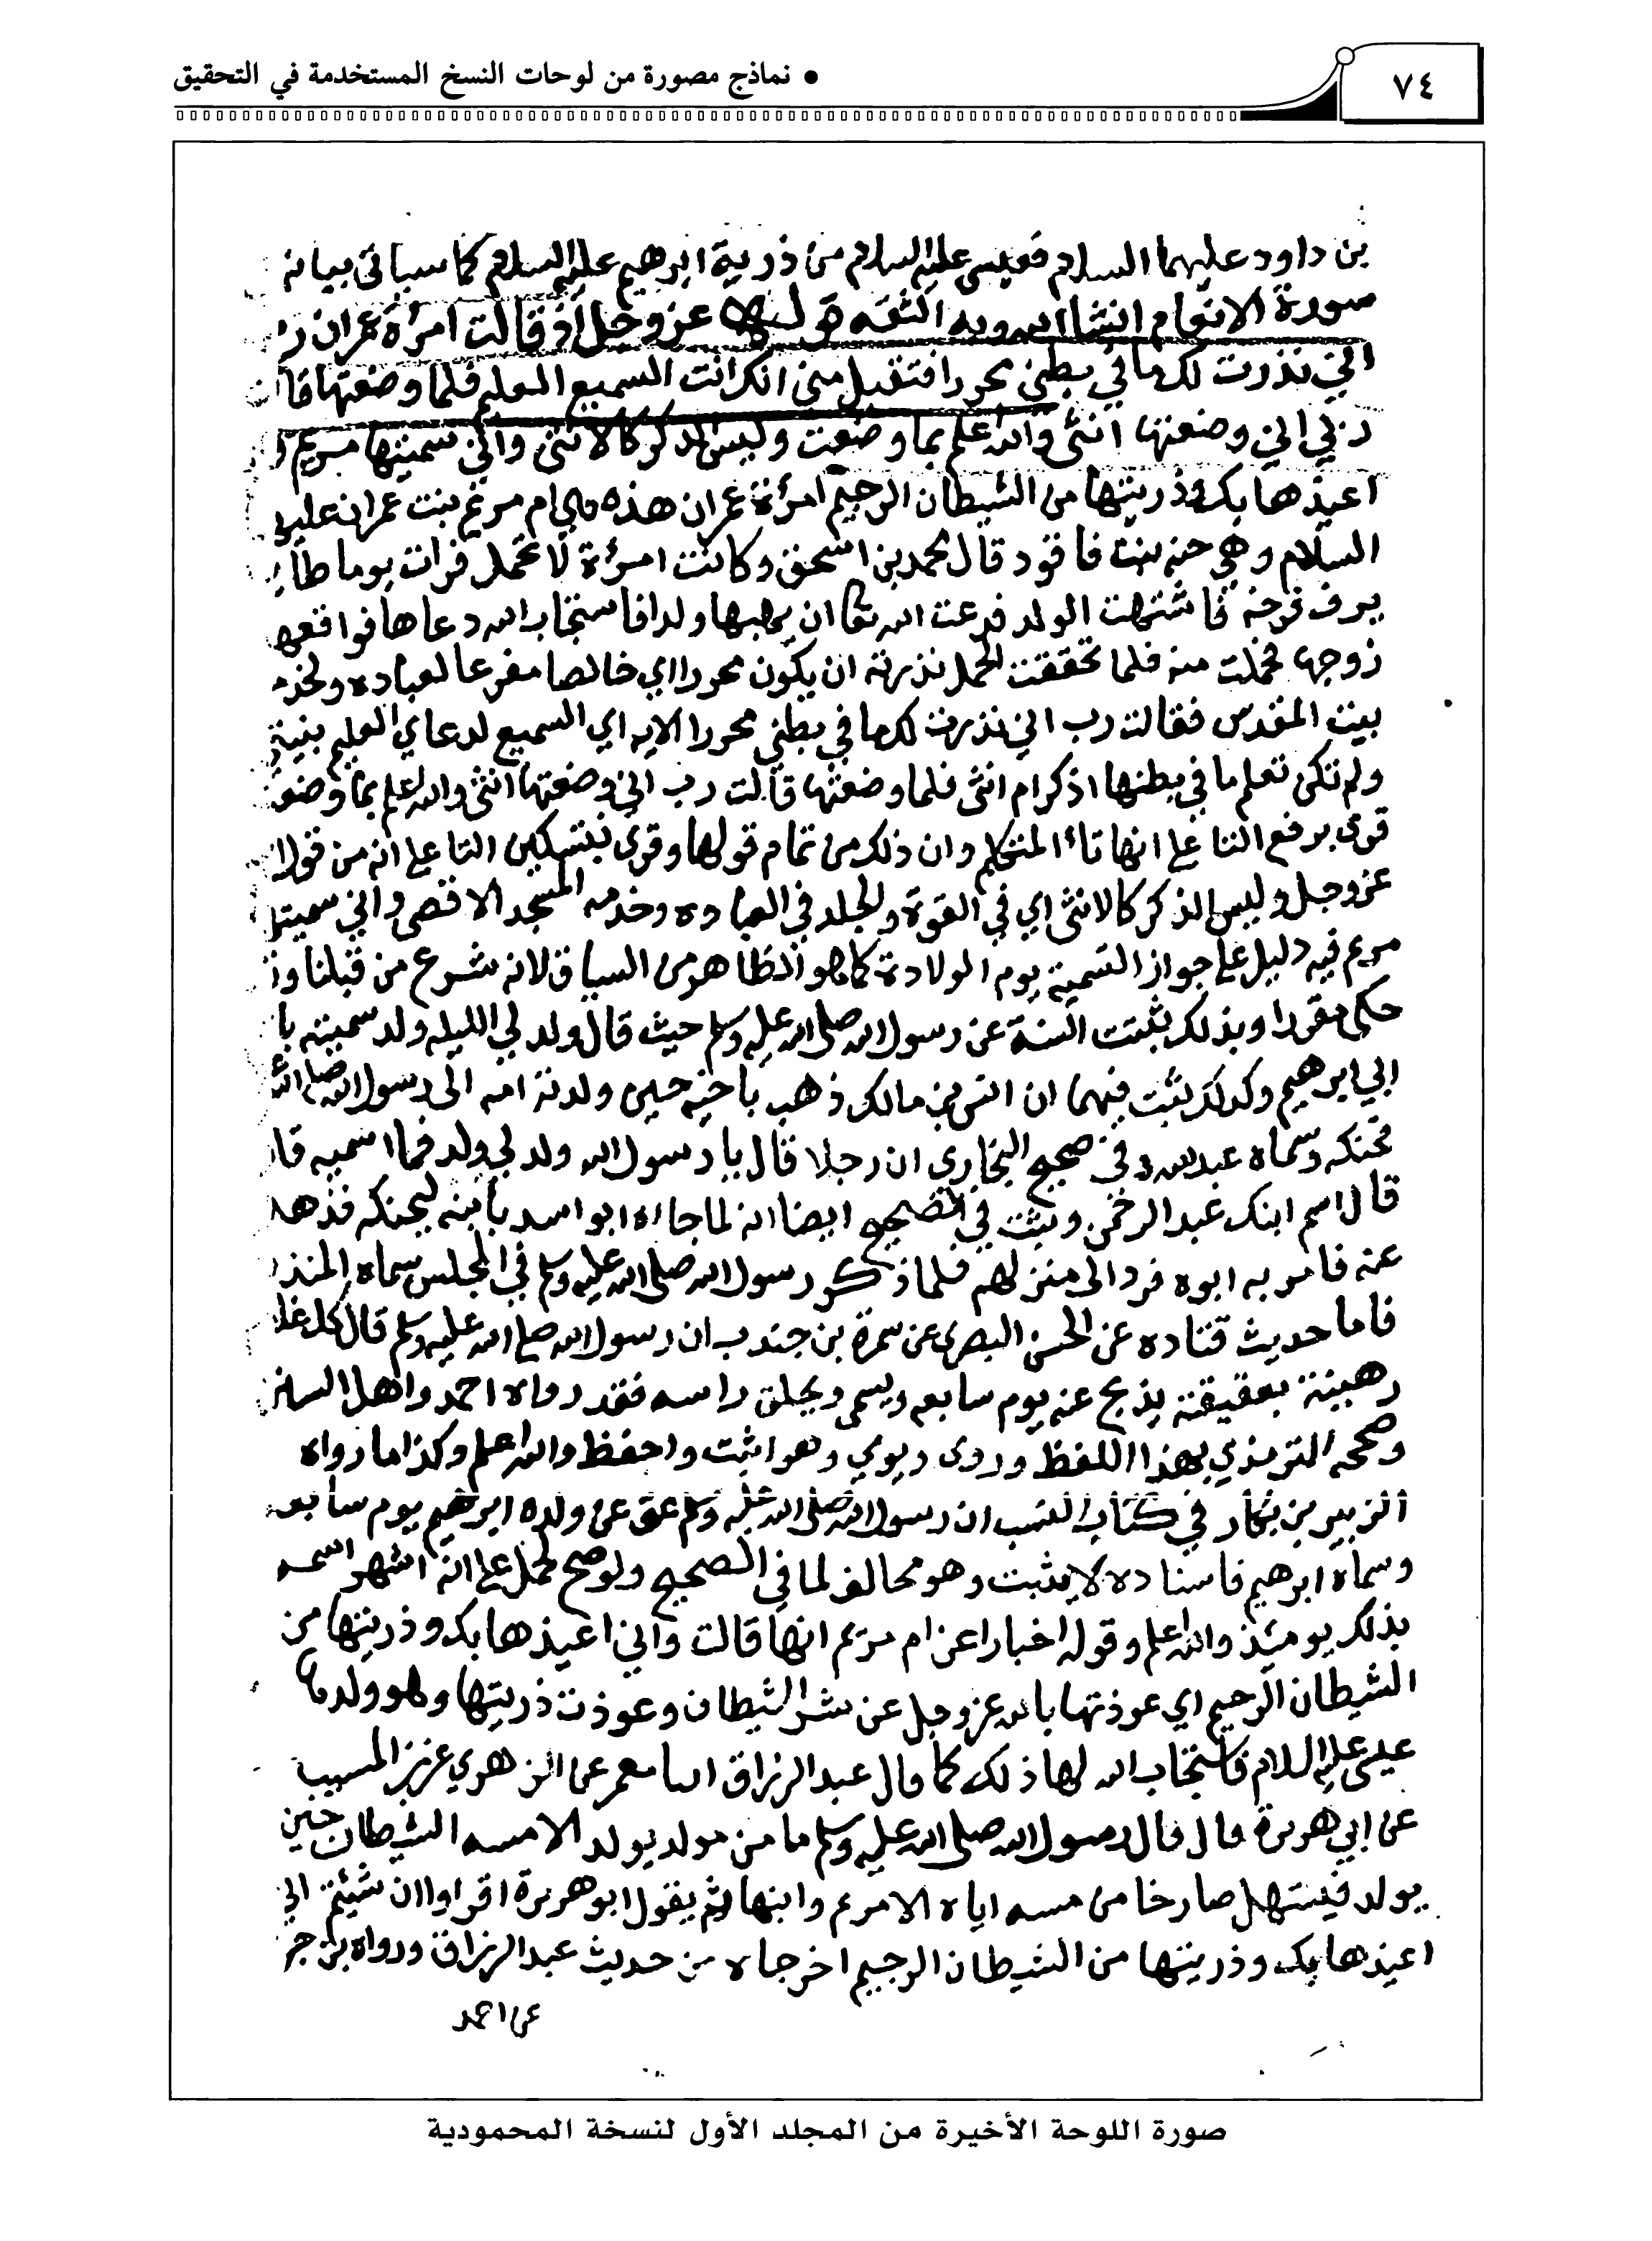 ٧٤
● نماذج مصورة من لوحات النسخ المستخدمة في التحقيق
بن داود عليهما السلام فعيسى عليه السلام من ذرية ابرهيم عليه السلام كما سياتى بيانه
سورة الانعام انشا الله وبه الثقه قوله عز وجل اذ قالت امرأة عمران
اني نذرت لك ما في بطني محررا فتقبل مني انك انت السميع العليم فلما وضعتها
اني وضعتها انثى والله اعلم بما وضعت وليس الذكر كالانثى واني سميتها مريم
اعيذها بك وذريتها من الشيطان الرجيم امرأة عمران هذه هي ام مريم بنت عمران
السلام وهي حنه بنت فاقود قال محمد بن اسحق وكانت امرأة لا تحمل فرات يوما
يزف فرخه فاشتهت الولد فدعت الله تعا ان يهبها ولدا فاستجاب الله دعاها فواقعها
زوجها فحملت منه فلما تحققت الحمل نذرته ان يكون محررا اي خالصا مفرغا للعباده
بيت المقدس فقالت رب اني نذرت لك ما في بطني محررا الايه اي السميع لدعاي العليم
ولم تكن تعلم ما في بطنها اذكر ام انثى فلما وضعتها قالت رب اني وضعتها انثى والله اعلم بما
قرى برفع التا على انها تاء المتكلم وان ذلك من تمام قولها وقرى بتسكين التا على انه من
عز وجل وليس الذكر كالانثى اي في القوة والجلد في العباده وخدمه المسجد الاقصى واني
مريم فيه دليل على جواز التسمية يوم الولادة كما هو الظاهر من السياق لانه شرع من قبلنا
حكى مقررا وبذلك ثبتت السنة عن رسول الله صلى الله عليه وسلم حيث قال ولد لي الليله ولد سميته
ابي ابرهيم وكذلك ثبت فيهما ان انس بن مالك ذهب باخيه حين ولدته امه الى رسول الله صلى الله
فحنكه وسماه عبد الله وفي صحيح البخاري ان رجلا قال يا رسول الله ولد لي ولد فما اسميه
قال اسم ابنك عبد الرحمن وثبت في الصحيح ايضا انه لما جاءه ابو اسيد بابنه ليحنكه
عنه فامر به ابوه فرد الى منزلهم فلما ذكر رسول الله صلى الله عليه وسلم في المجلس سماه المنذر
فاما حديث قتاده عن الحسن البصرى عن سمرة بن جندب ان رسول الله صلى الله عليه وسلم قال كل
رهينة بعقيقته يذبح عنه يوم سابعه ويسمى ويحلق راسه فقد رواه احمد واهل السنن
وصححه الترمذي بهذا اللفظ وروى ويدمي وهو اثبت واحفظ والله اعلم وكذا ما رواه
الزبير بن بكار في كتاب النسب ان رسول الله صلى الله عليه وسلم عق عن ولده ابرهيم يوم سابعه
وسماه ابرهيم فاسناده لا يثبت وهو مخالف لما في الصحيح ولو صح لحمل على انه اشهر اسمه
بذلك يومئذ والله اعلم وقوله اخبارا عن ام مريم انها قالت واني اعيذها بك وذريتها من
الشيطان الرجيم اي عوذتها بالله عز وجل من شر الشيطان وعوذت ذريتها وهو ولدها
عيسى عليه السلام فاستجاب الله لها ذلك كما قال عبد الرزاق انبا معمر عن الزهري عن بن المسيب
عن ابي هريرة قال قال رسول الله صلى الله عليه وسلم ما من مولد يولد الا مسه الشيطان حين
يولد فيستهل صارخا من مسه اياه الا مريم وابنها ثم يقول ابو هريرة اقراوا ان شئتم اني
اعيذها بك وذريتها من الشيطان الرجيم اخرجاه من حديث عبد الرزاق ورواه بن جر
عن احمد
صورة اللوحة الأخيرة من المجلد الأول لنسخة المحمودية